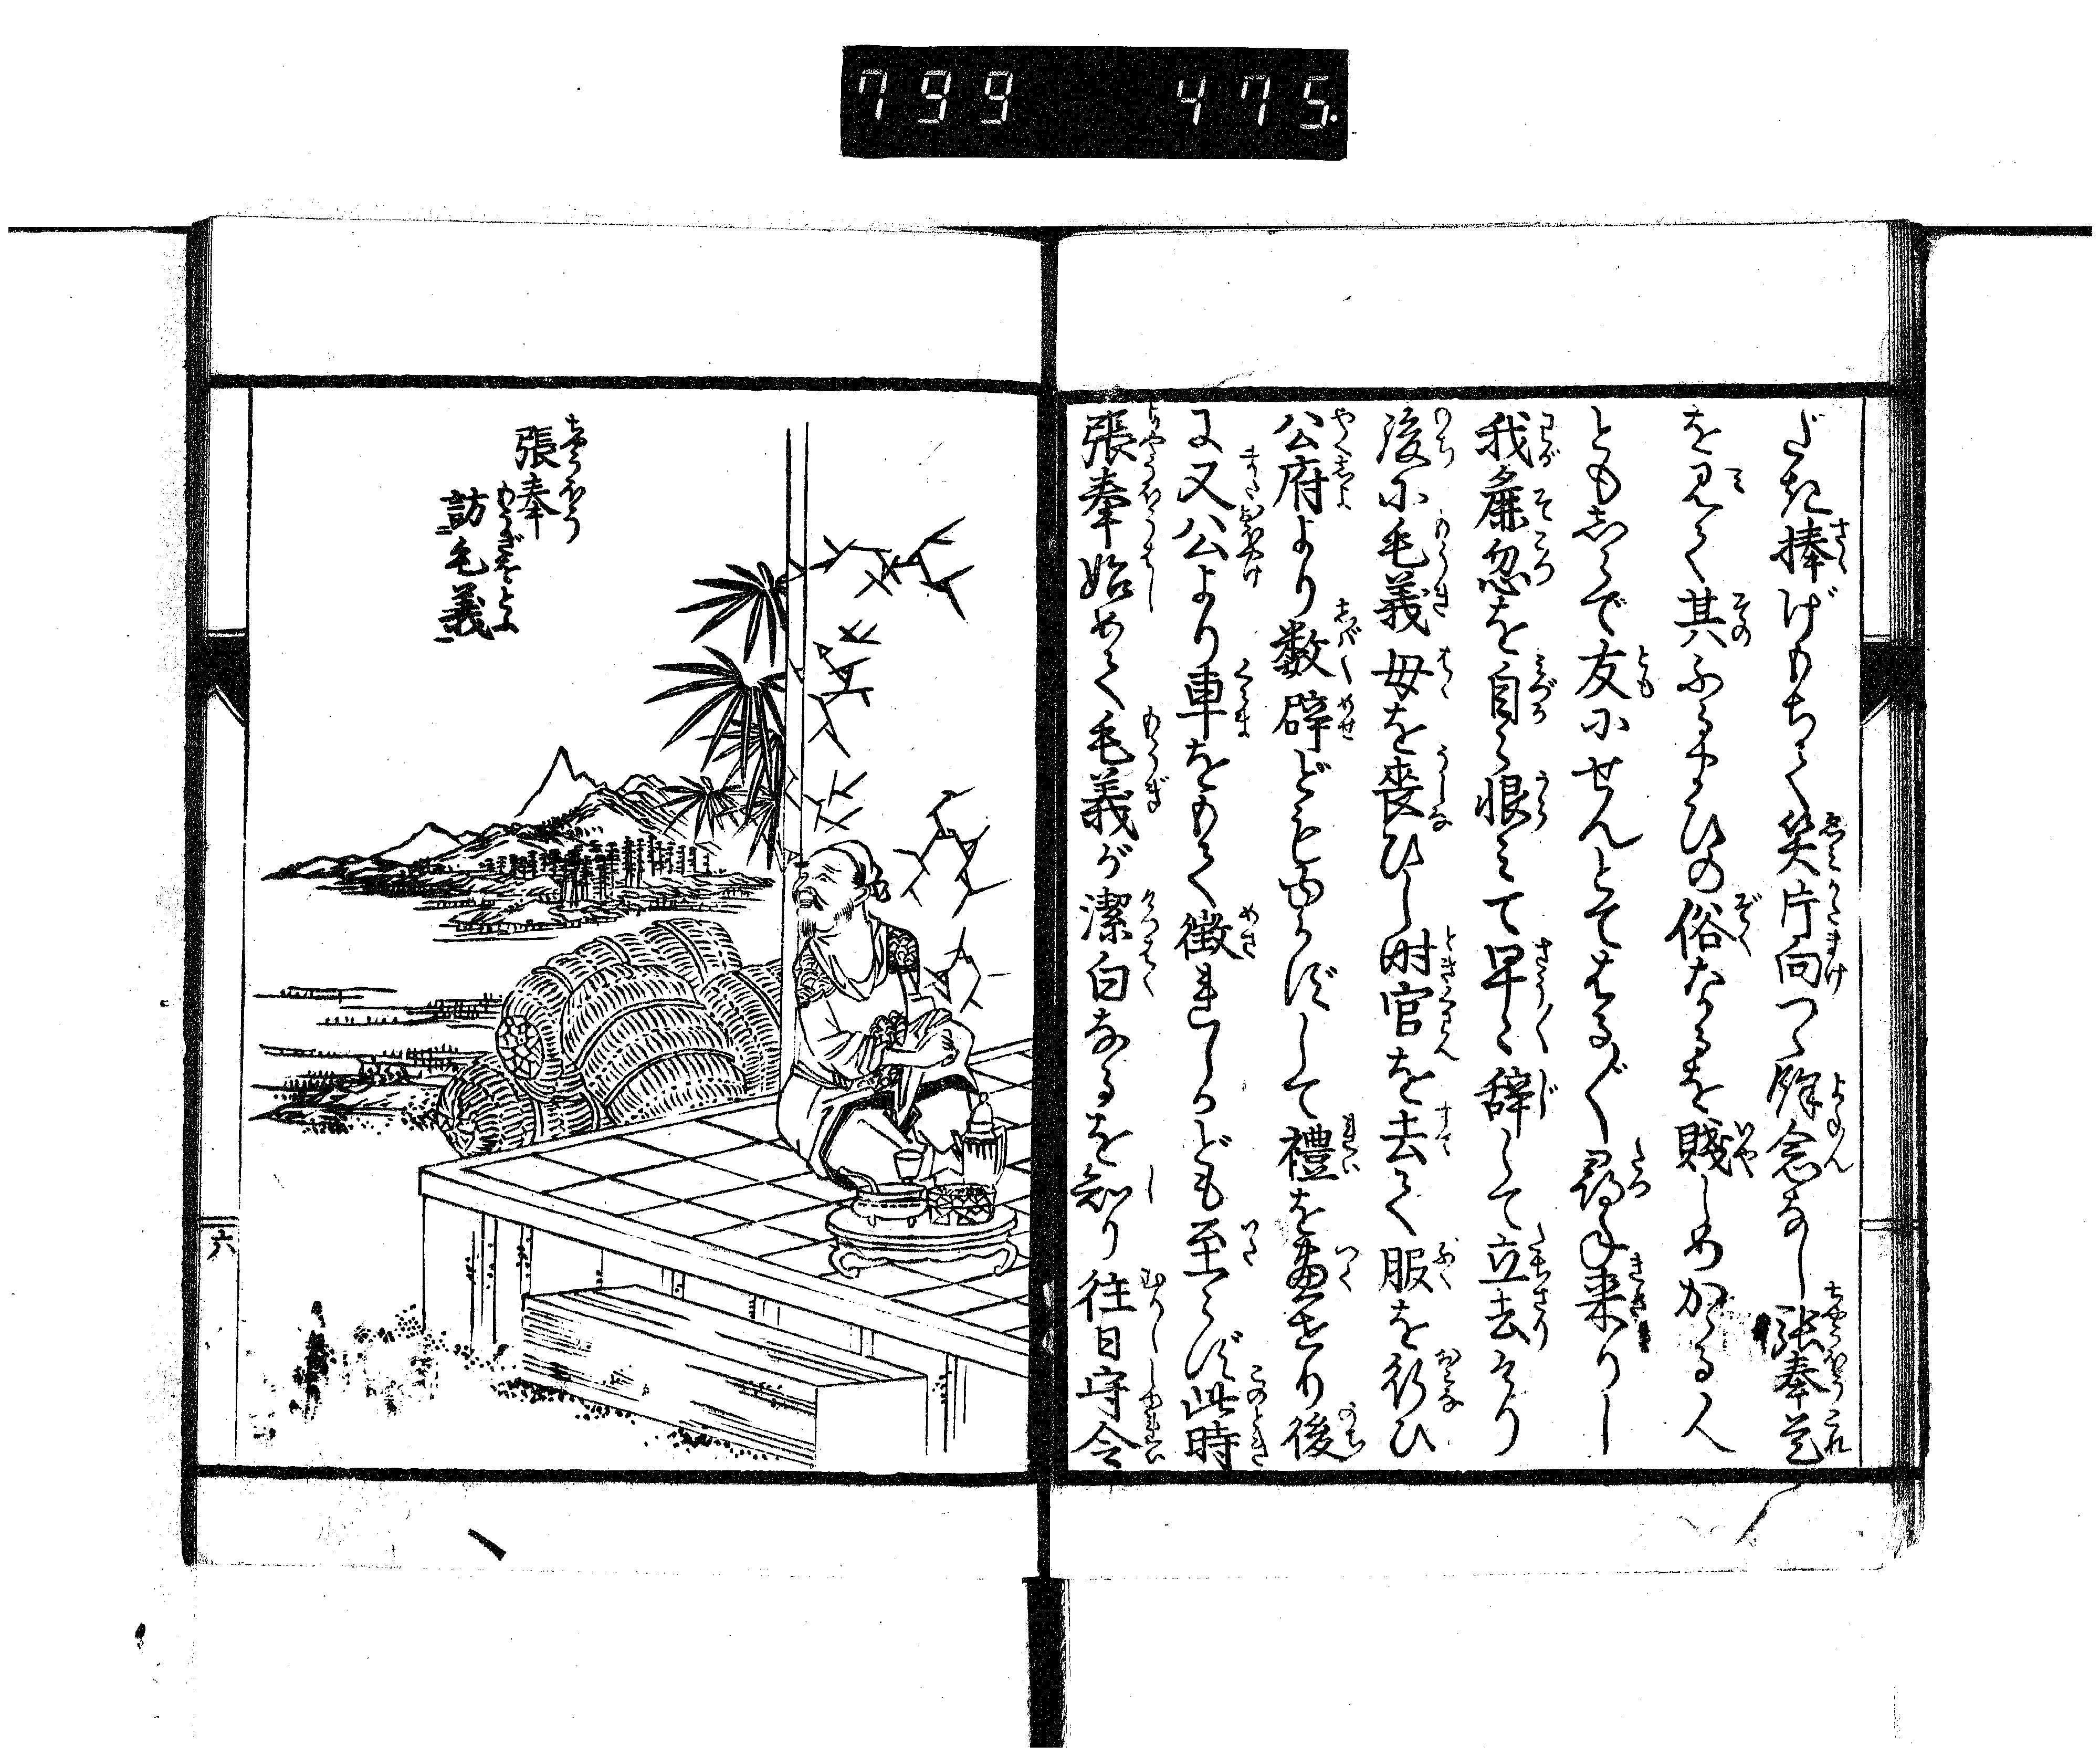 799 475.
だき捧げもちて笑片向つゝ餘念なし張奉是
を見て其ふるまひの俗たるを賤しめかゝる人
ともしらで友にせんとてはる〴〵尋ね来りし
我麁忽を自ら恨みて早々辞して立去けり
後に毛義母を喪ひし时官を去て服を行ひ
公府より数辟ども ゆかずして禮を盡せり後
に又公より車をもて徴れしかども至らず此時
張奉始めて毛義が潔白なるを知り往日守令
張奉
訪毛義
六